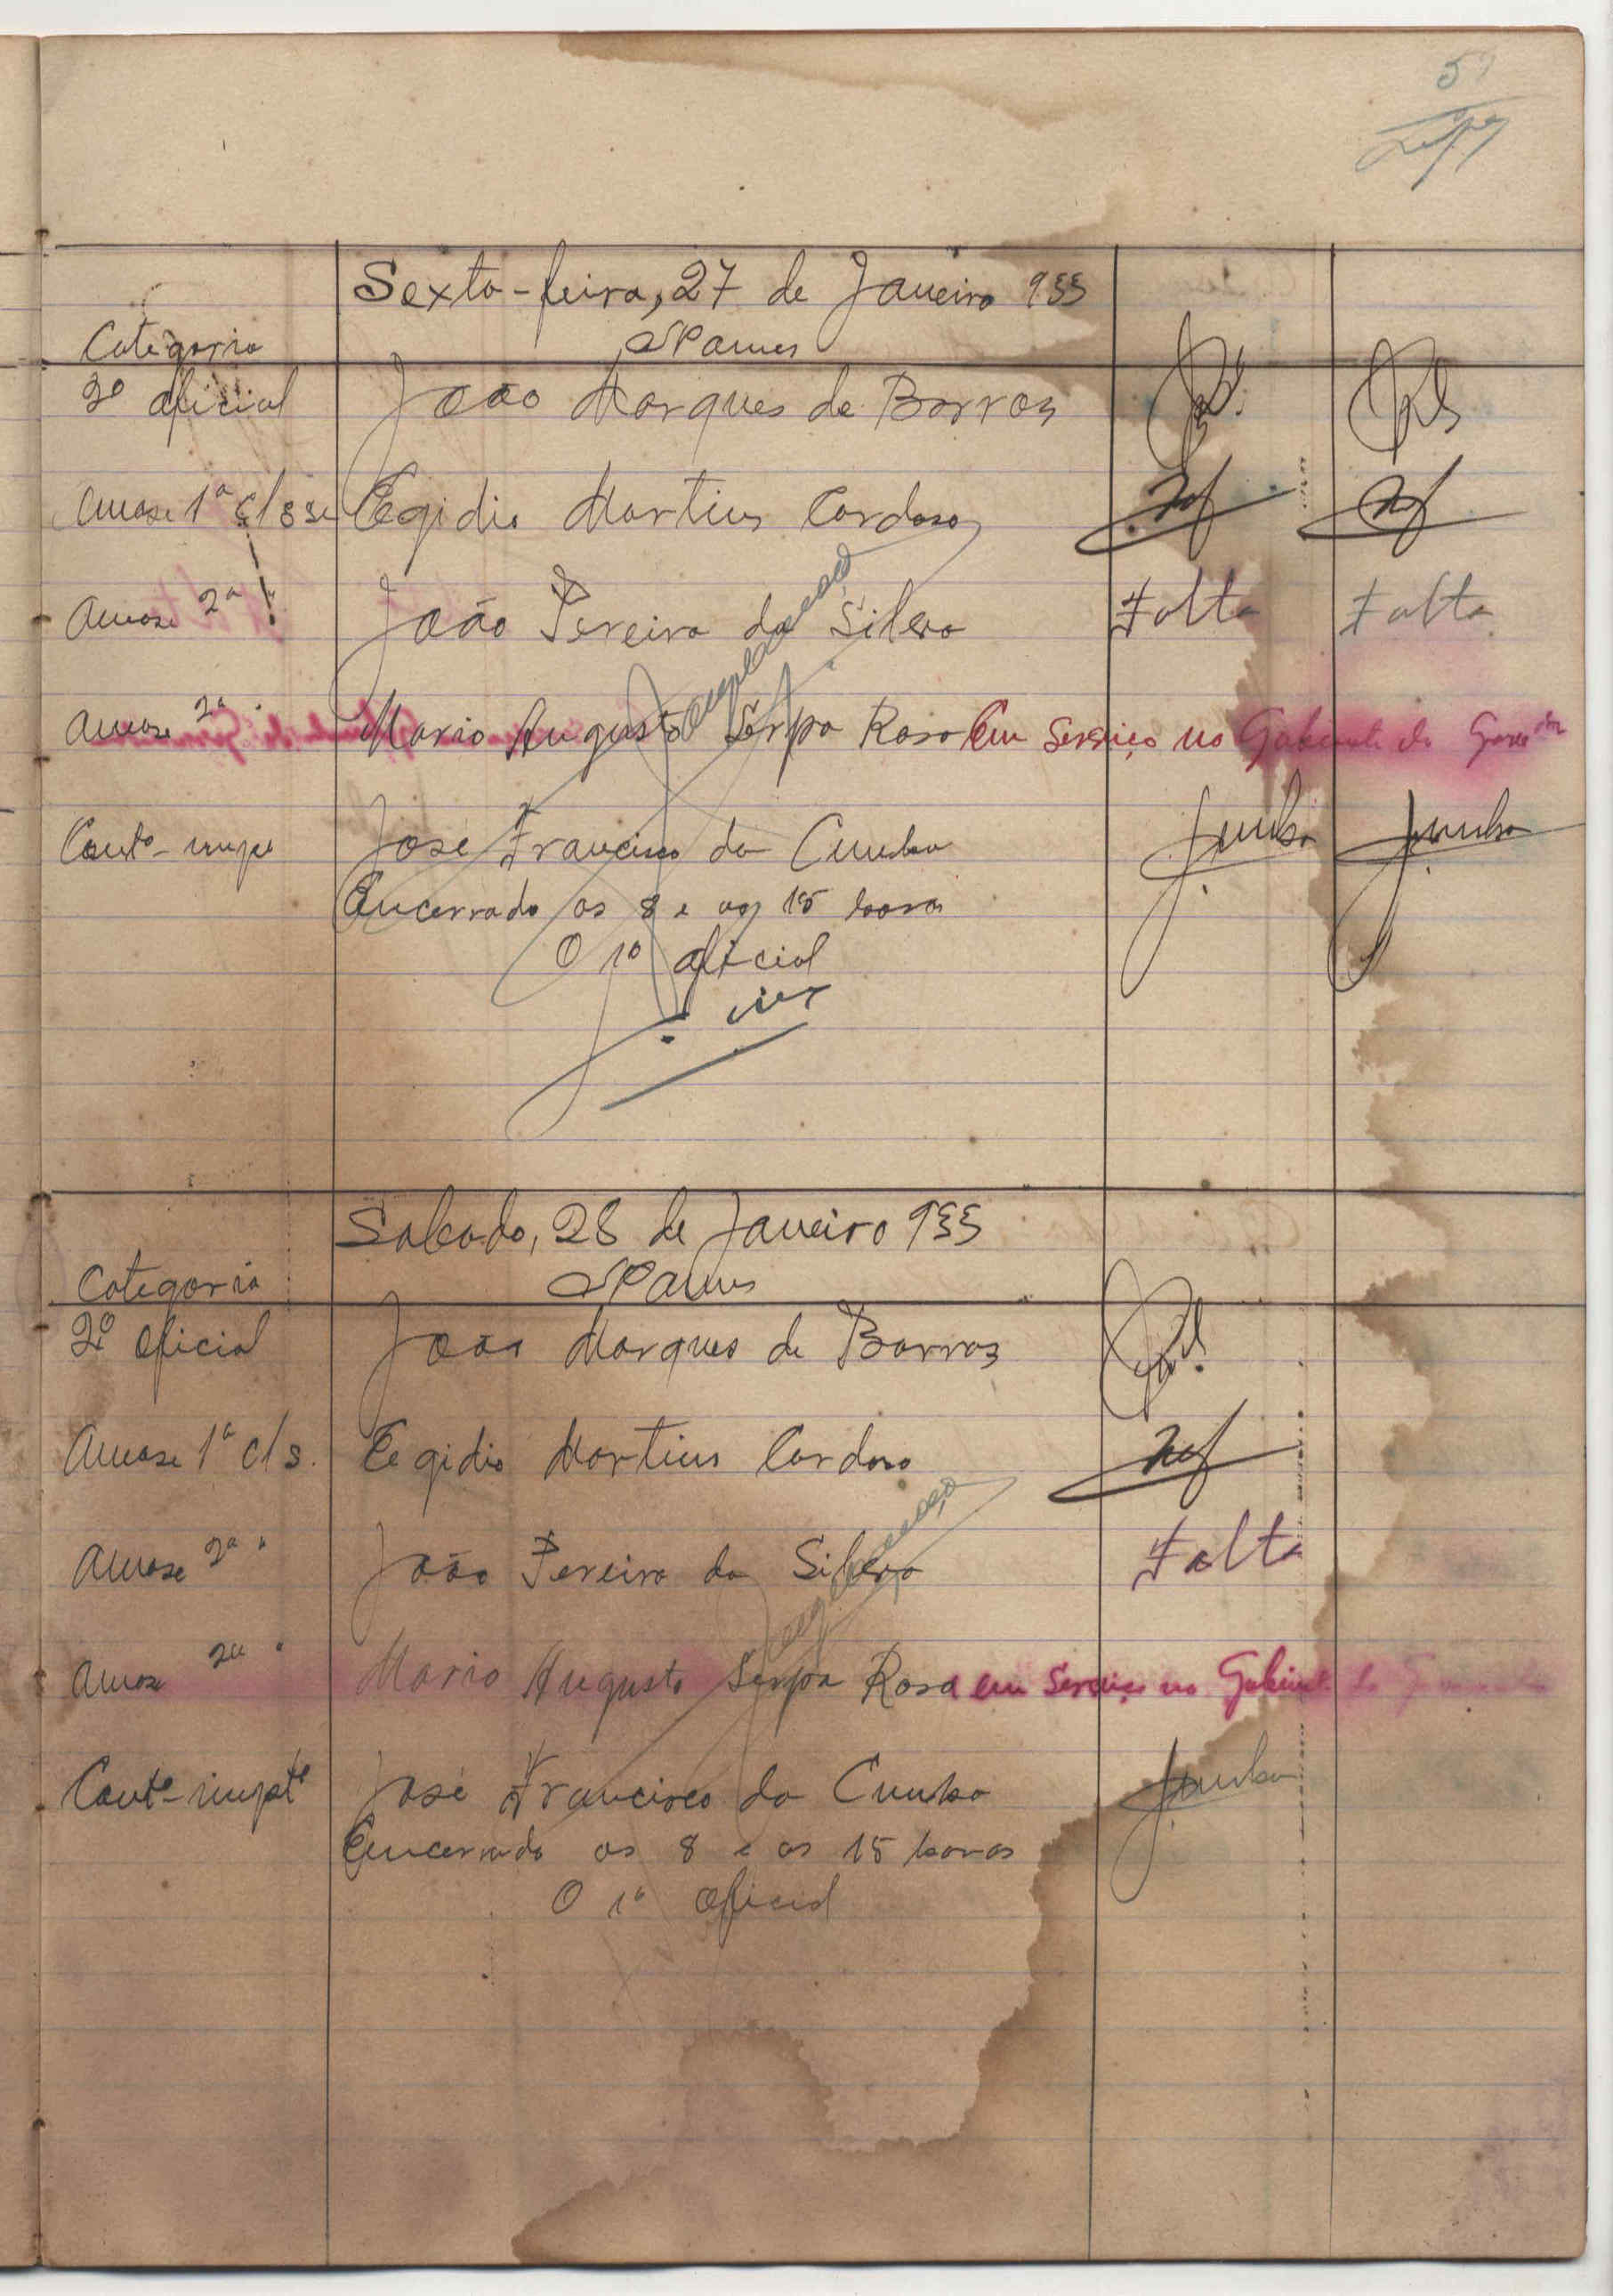 5
Sexta-feira, 27 de Janeiro 933
Categoria Nomes
2º oficial João Marques de Barros
Amase 1ª clsse Egidio Martins Cardoso
Amase 2ª " João Pereira da Silva Falta Falta
Amase 2ª " Mario Augusto Serpa Rosa Em serviço no Gabinete do Governador
Contº-impe José Francisco da Cunha JCunha JCunha
Encerrado as 8 e as 15 horas
O 1º oficial
Sabado, 28 de Janeiro 933
Categoria Nomes
2º Oficial João Marques de Barros
Amase 1ª cls. Egidio Martins Cardoso
Amase 2ª " João Pereira da Silva Falta
Amase 2ª " Mario Augusto Serpa Rosa em serviço no Gabinete do
Contº-impte José Francisco da Cunha JCunha
Encerrado as 8 e as 15 horas
O 1º Oficial